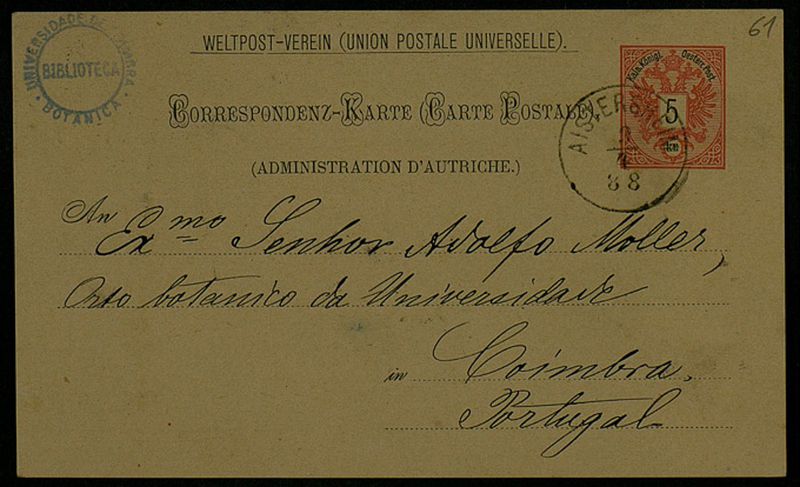 61
UNIVERSIDADE DE COIMBRA
BIBLIOTECA
BOTANICA
WELTPOST-VEREIN (UNION POSTALE UNIVERSELLE).
Kais. Königl. Oesterr. Post.
5
CORRESPONDENZ-KARTE (CARTE POSTALE)
AISTERSHEIM
88
(ADMINISTRATION D'AUTRICHE.)
An
Exmo Senhor Adolfo Moller,
Orto botanico da Universidade
in Coimbra.
Portugal